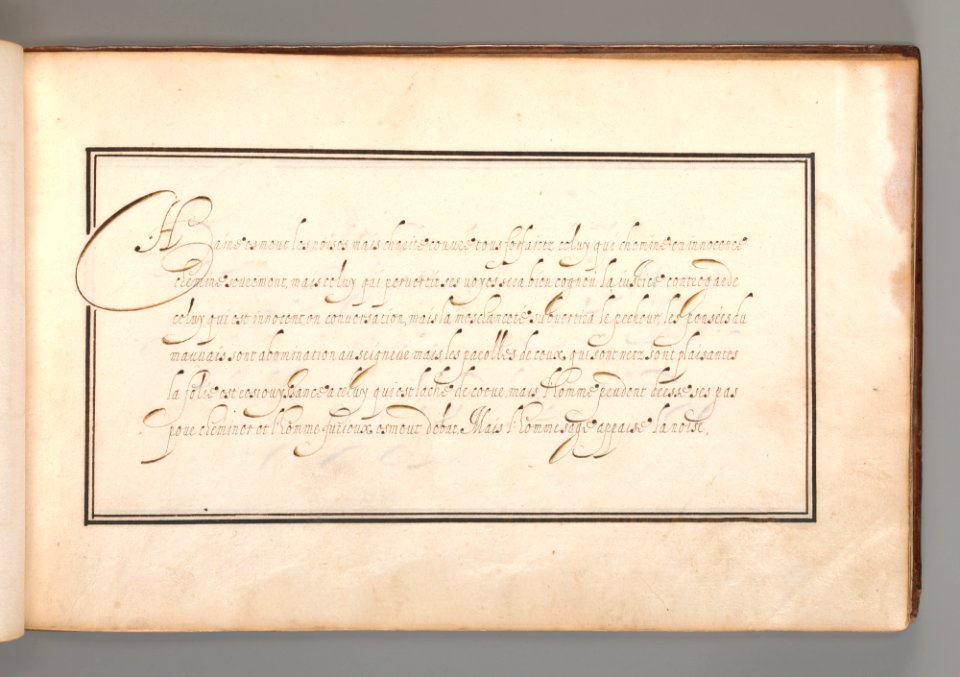 Haine esmeut les noises mais charité couvre tous forfaictz celuy que chemine en innocence
chemine seurement, mais celuy qui pervertit ses voyes sera bien cogneu la justice contregarde
celuy qui est innocent en conversacion, mais la meschanceté subvertira le pecheur, les pensées du
mauvais sont abomination au seigneur mais les parolles de ceux qui sont netz sont plaisantes
la folie est esjouyssance a celuy qui est lache de coeur, mais l'homme prudent dresse ses pas
pour cheminer et l'homme furieux esmeut debat. Mais l'homme sage appaise la noise.